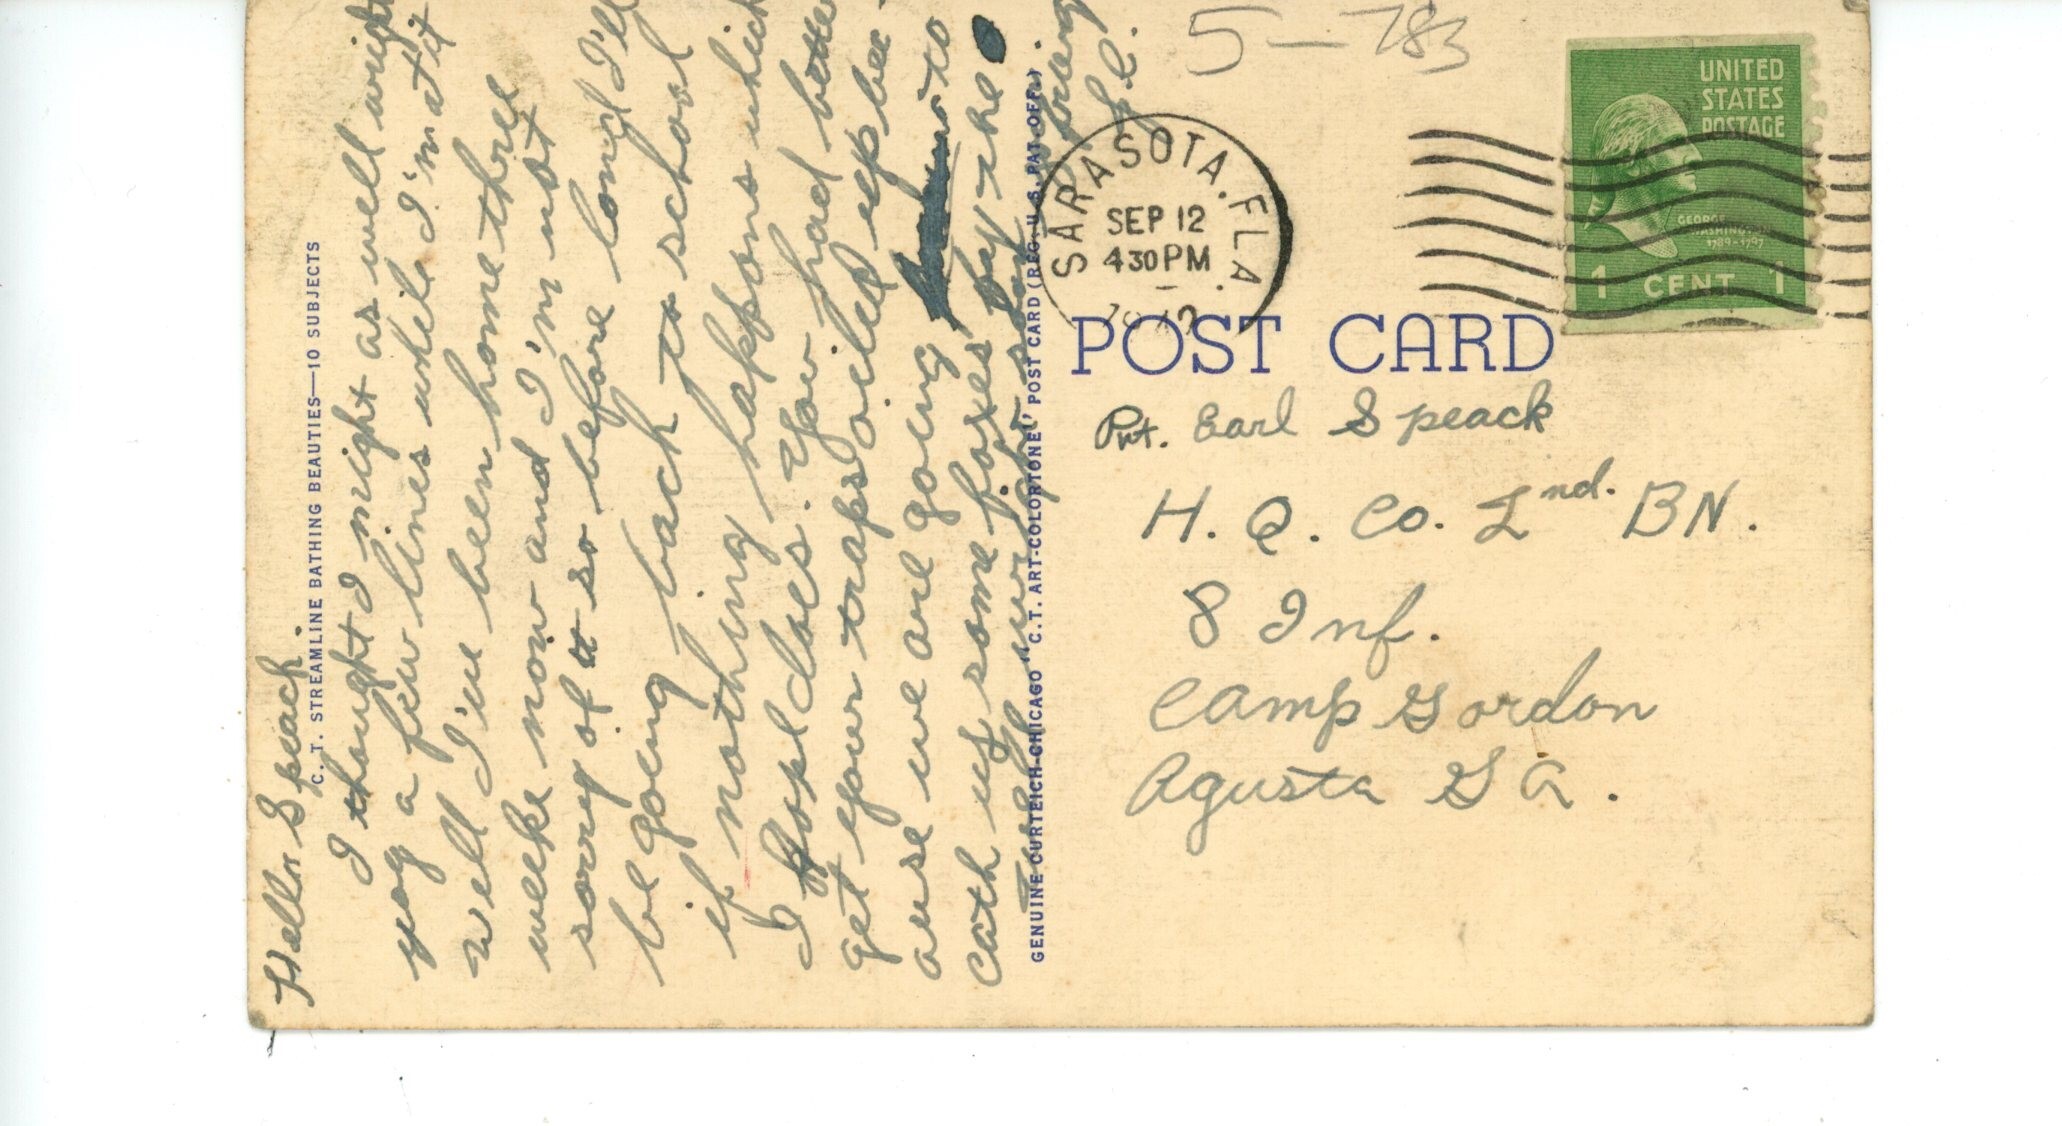 Hello Speack.
I thought I might as well write
you a few lines while I'm at it
well I've been home three
weeks now and I'm not
sorry of it so before long I'll
be going back to school
if nothing happens which
I hope does. You had better
get your traps oiled up bec-
ause we are going to
catch us some foxes by the
C. T. STREAMLINE BATHING BEAUTIES—10 SUBJECTS
GENUINE CURTEICH-CHICAGO "C.T. ART-COLORTONE" POST CARD (REG. U.S. PAT. OFF.)
5-783
SARASOTA, FLA.
SEP 12
430 PM
1942
UNITED
STATES
POSTAGE
GEORGE
WASHINGTON
1789-1797
1 CENT 1
POST CARD
Pvt. Earl Speack
H. Q. Co. 2nd. BN.
8 Inf.
Camp Gordon
Agusta G A.